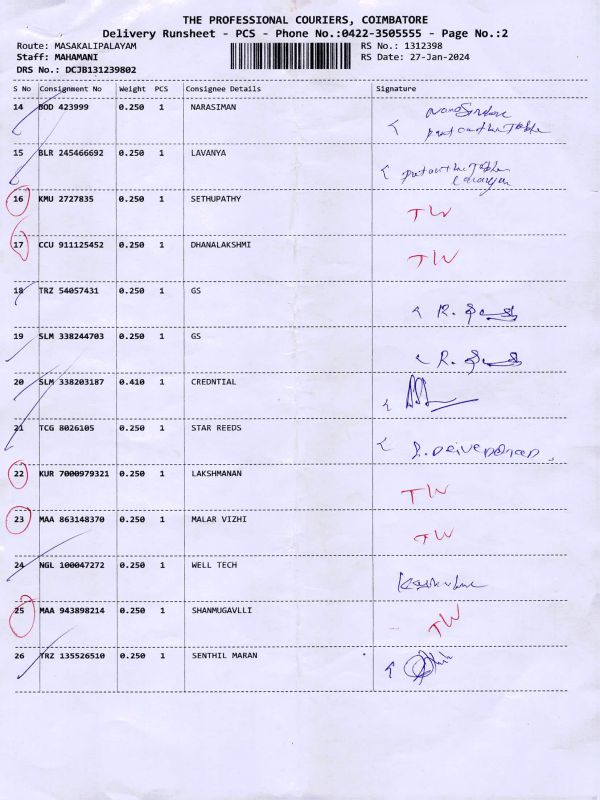 THE PROFESSIONAL COURIERS, COIMBATORE
Delivery Runsheet - PCS - Phone No.:0422-3505555 - Page No.:2
Route: MASAKALIPALAYAM RS No.: 1312398
Staff: MAHAMANI RS Date: 27-Jan-2024
DRS No.: DCJB131239802
S No Consignment No Weight PCS Consignee Details Signature
14 BOD 423999 0.250 1 NARASIMAN
put on the Table
15 BLR 245466692 0.250 1 LAVANYA
put on the Table
16 KMU 2727835 0.250 1 SETHUPATHY TW
17 CCU 911125452 0.250 1 DHANALAKSHMI TW
18 TRZ 54057431 0.250 1 GS R.
19 SLM 338244703 0.250 1 GS R.
20 SLM 338203187 0.410 1 CREDNTIAL
21 TCG 8026105 0.250 1 STAR REEDS
22 KUR 7000979321 0.250 1 LAKSHMANAN TW
23 MAA 863148370 0.250 1 MALAR VIZHI TW
24 NGL 100047272 0.250 1 WELL TECH
25 MAA 943898214 0.250 1 SHANMUGAVLLI TW
26 TRZ 135526510 0.250 1 SENTHIL MARAN